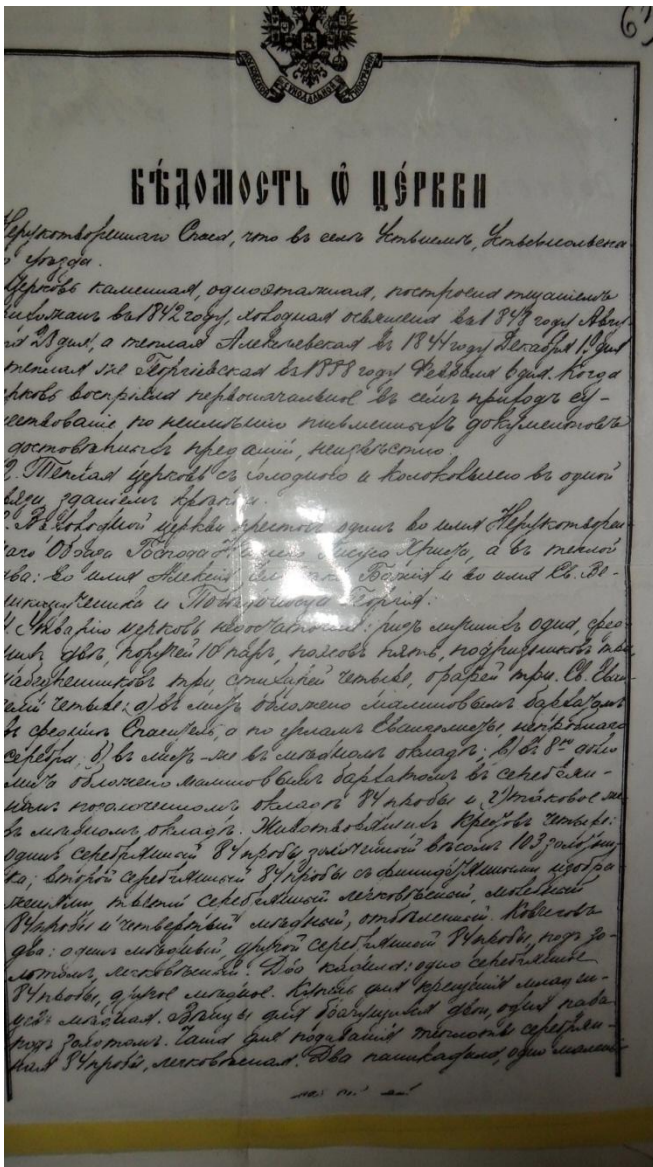 63
МОСКОВСКОЙ СѴНОДАЛЬНОЙ ТИПОГРАФІИ
ВѢДОМОСТЬ Ѡ ЦЕ́РКВИ
Нерукотвореннаго Спаса, что въ селѣ Устьнемъ, Устьсысольска-
го уѣзда.
Церковь каменная, одноэтажная, построена тщаніемъ
прихожанъ въ 1842 году, холодная освящена въ 1848 году Авгу-
ста 23 дня, а теплая Алексѣевская въ 1844 году Декабря дня
теплая же Георгіевская въ 1858 году Февраля 6 дня. Когда
церковь воспріяла первоначальное въ семъ приходѣ су-
ществованіе по неимѣнію письменныхъ документовъ
достовѣрныхъ преданій, неизвѣстно.
2. Теплая церковь съ холодною и колокольнею въ одной
связи, зданіемъ крѣпки.
3. Въ холодной церкви престолъ одинъ во имя Нерукотворен-
наго Образа Господа Іисуса Христа, а въ теплой
два: во имя Алексія Божія и во имя Св. Ве-
ликомученика и Побѣдоносца Георгія.
4. Утварію церковь недостаточна: ризъ одна,
двѣ, поручей 10 паръ, поясовъ пять, подризниковъ
набедренниковъ три, стихарей четыре, орарей три. Св. Еван-
гелій четыре: а) въ листъ обложено малиновымъ бархатомъ
въ срединѣ Спаситель, а по угламъ Евангелисты,
серебра, б) въ листъ-же въ мѣдномъ окладѣ; в) въ 8ю долю
листа обложено малиновымъ бархатомъ въ серебрян-
номъ позолоченномъ окладѣ 84 пробы и г) таковое же
въ мѣдномъ окладѣ. Животворящихъ Крестовъ четыре:
одинъ серебрянный 84 пробы золоченный вѣсомъ 103 золотни-
ка; второй серебрянный 84 пробы съ финифтянными изобра-
женіями, третій серебрянный легковѣсный,
84 пробы и четвертый мѣдный, отбѣленный. Ковчеговъ
два: одинъ мѣдный, другой серебрянный 84 пробы, подъ зо-
лотомъ, легковѣсный. Два кадила: одно серебрянное
84 пробы, другое мѣдное. Купель для крещенія младен-
цевъ мѣдная. Вѣнцы для брачущихся двои, одна пара
подъ золотомъ. Чаша для подаванія теплоты серебрян-
ная 84 пробы, легковѣсная. Два паникадила, одно